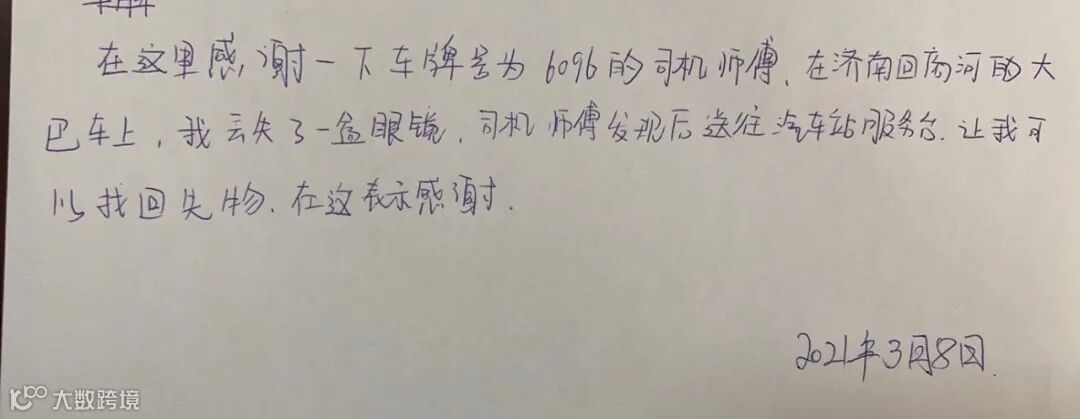 在这里感谢一下车牌号为6096的司机师傅、在济南回商河的大
巴车上，我丢失了一盒眼镜.司机师傅发现后送往汽车站服务台.让我可
以找回失物.在这表示感谢.
2021年3月8日.
大数跨境